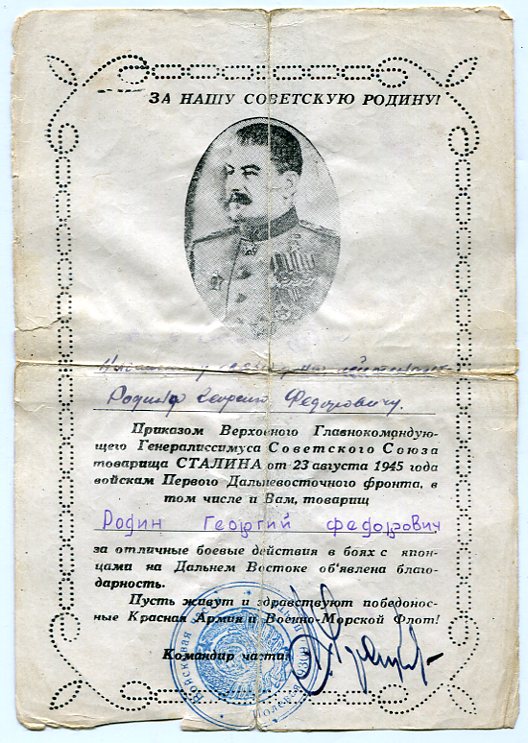 ЗА НАШУ СОВЕТСКУЮ РОДИНУ!
Родину Георгию Федоровичу.
Приказом Верховного Главнокомандую-
щего Генералиссимуса Советского Союза
товарища СТАЛИНА от 23 августа 1945 года
войскам Первого Дальневосточного фронта, в
том числе и Вам, товарищ
Родин Георгий Федорович
за отличные боевые действия в боях с япон-
цами на Дальнем Востоке об'явлена благо-
дарность.
Пусть живут и здравствуют победонос-
ные Красная Армия и Военно-Морской Флот!
Командир части